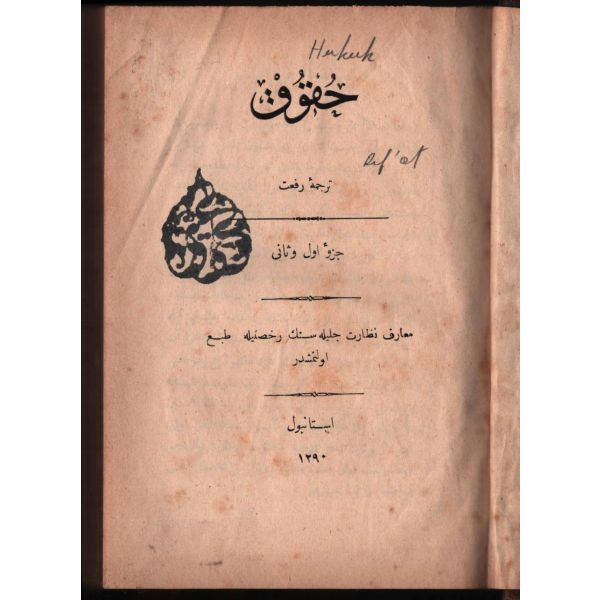 Hukuk
حُقُوقْ
Ref'at
ترجمهٔ رفعت
جزؤ اول و ثانی
معارف نظارت جلیله سنك رخصتیله طبع
اولنمشدر
استانبول
١٢٩٠